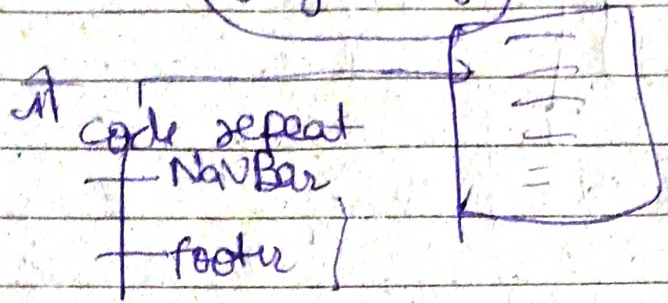 code repeat
NavBar
footer